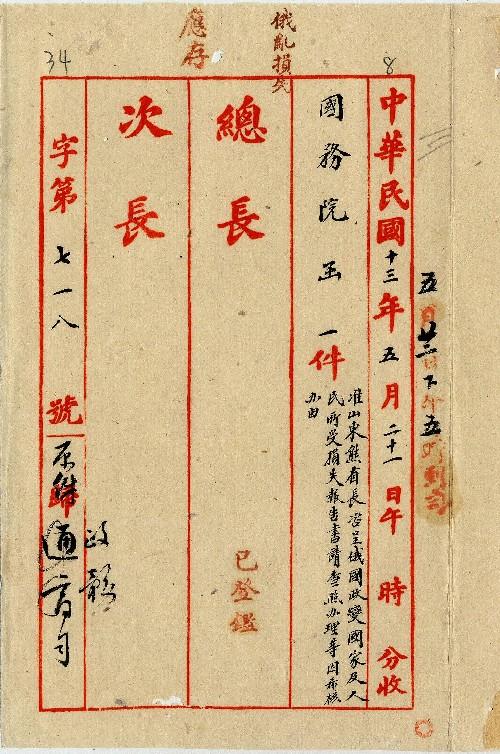 俄亂損失
應存
34
8
五月廿二日下午五時到司
中華民國十三年五月二十一日午時分收
國務院函一件
准山東熊省長咨呈俄國政變國家及人
民所受損失報告書請查照办理等因希核
办由
總長
已登鑑
次長
字第七一八號
原歸通商司